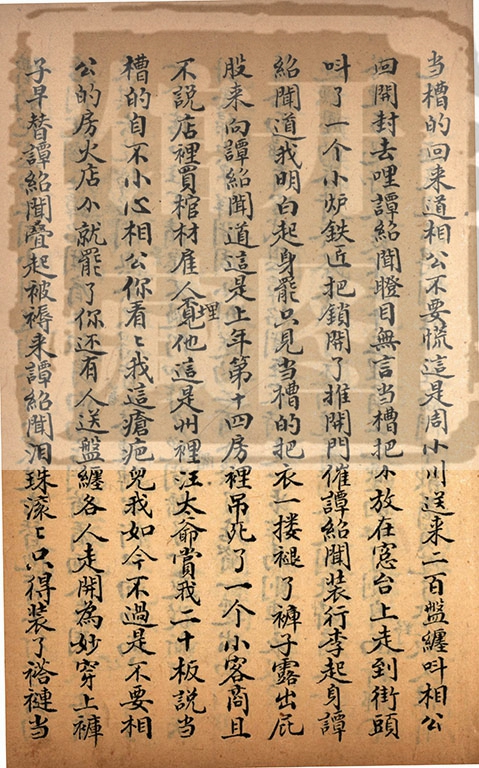 当槽的回来道相公不要慌這是周小川送来二百盤纏呌相公
回開封去哩譚紹聞瞪目無言当槽把錢放在窓台上走到街頭
呌了一个小炉鉄匠把鎖開了推開門催譚紹聞装行李起身譚
紹聞道我明白起身罷只见当槽的把衣一搂褪了褲子露出屁
股来向譚紹聞道這是上年第十四房裡吊死了一个小客商且
不說店裡買棺材雇人埋他這是州裡汪太爺賞我二十板説当
槽的自不小心相公你看〻我這瘡疤兒我如今不過是不要相
公的房火店錢就罷了你还有人送盤纏各人走開為妙穿上褲
子早替譚紹聞疊起被褥来譚紹聞泪珠滚〻只得装了褡褳当